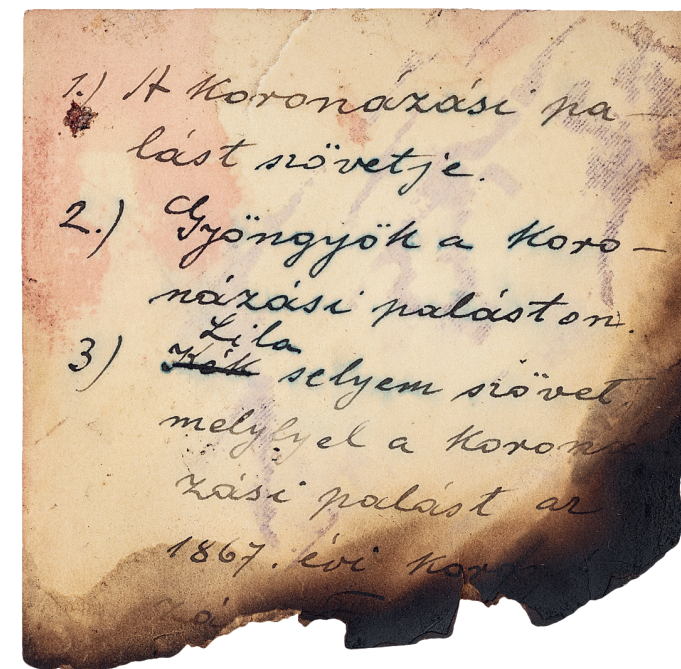 1.) A koronázási pa-
lást szövetje.
2.) Gyöngyök a koro-
názási paláston.
3) Lila
Kék selyem szövet
melylyel a korona
zási palást az
1867. évi koro
zá